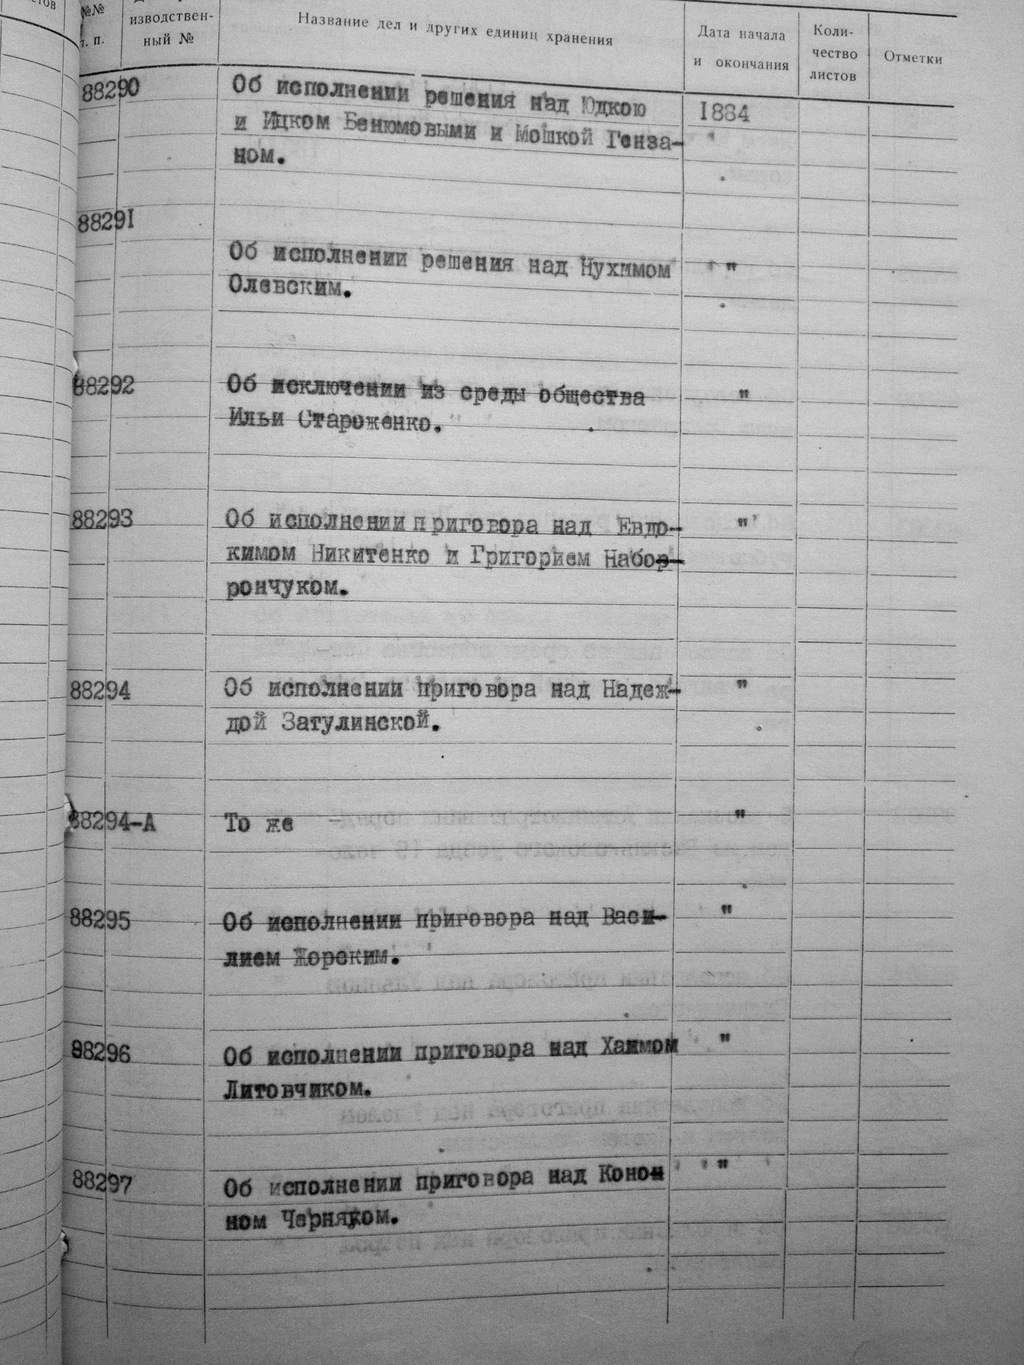 №№
изводствен-
т. п.
ный №
Название дел и других единиц хранения
Дата начала
и окончания
Коли-
чество
листов
Отметки
88290 Об исполнении решения над Юдкою 1884
и Ицком Бенюмовыми и Мошкой Генза- "
ном.
88291
Об исполнении решения над Нухимом "
Олевским.
88292 Об исключении из среды общества "
Ильи Староженко.
88293 Об исполнении приговора над Евдо- "
кимом Никитенко и Григорием Набор-
рончуком.
88294 Об исполнении приговора над Надеж- "
дой Затулинской.
88294-А То же "
88295 Об исполнении приговора над Васи- "
лием Жорским.
88296 Об исполнении приговора над Хаимом "
Литовчиком.
88297 Об исполнении приговора над Конон "
ном Черняком.